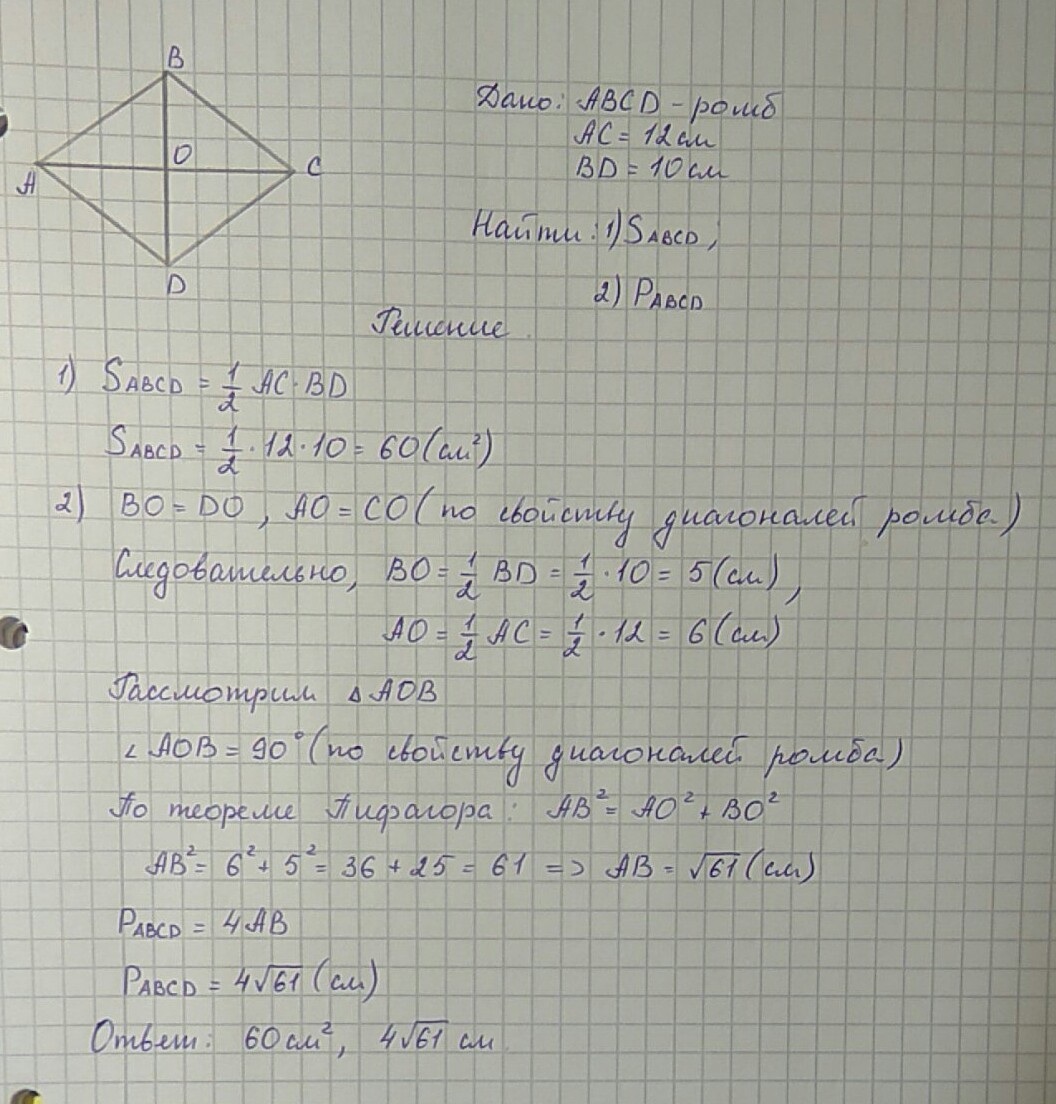 B
O
A
C
D
Дано: ABCD - ромб
AC = 12 см
BD = 10 см
Найти: 1) SABCD;
2) PABCD
Решение.
1) SABCD = 1/2 AC · BD
SABCD = 1/2 · 12 · 10 = 60 (см²)
2) BO = DO, AO = CO (по свойству диагоналей ромба)
Следовательно, BO = 1/2 BD = 1/2 · 10 = 5 (см),
AO = 1/2 AC = 1/2 · 12 = 6 (см)
Рассмотрим △ AOB
∠ AOB = 90° (по свойству диагоналей ромба)
По теореме Пифагора: AB² = AO² + BO²
AB² = 6² + 5² = 36 + 25 = 61 => AB = √61 (см)
PABCD = 4AB
PABCD = 4√61 (см)
Ответ: 60 см², 4√61 см.